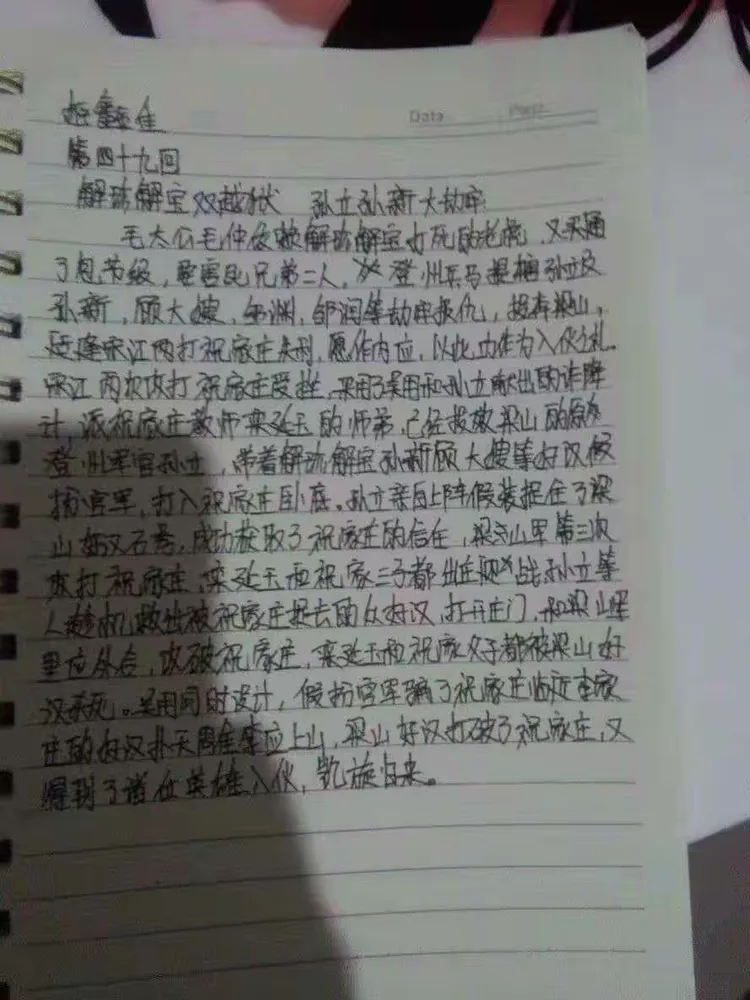 Data Page
第四十九回
解珍解宝双越狱 孙立孙新大劫牢
毛太公毛仲义赖解珍解宝打死的老虎,又买通
了包节级,要害死兄弟二人,登州兵马提辖孙立及
孙新,顾大嫂,邹渊,邹润等劫牢报仇,投奔梁山,
适逢宋江两打祝家庄失利,愿作内应,以此功作为入伙之礼。
宋江两次攻打祝家庄受挫,采用了吴用和孙立献出的诈降
计,派祝家庄教师栾延玉的师弟,已经投放梁山的原
登州军官孙立,带着解珍解宝孙新顾大嫂等好汉假
扮官军,打入祝家庄卧底。孙立亲自上阵假装捉住了梁
山好汉石秀,成功获取了祝家庄的信任,梁山军第三次
攻打祝家庄,栾延玉和祝家三子都出庄迎战孙立等
人趁机救出被祝家庄捉去的众好汉,打开庄门,和梁山军
里应外合,攻破祝家庄,栾延玉和祝家父子都被梁山好
汉杀死。吴用同时设计,假扮官军骗了祝家庄临近李家
庄的好汉扑天雕李应上山,梁山好汉打破了祝家庄,又
得到了诸位英雄入伙,凯旋归来。